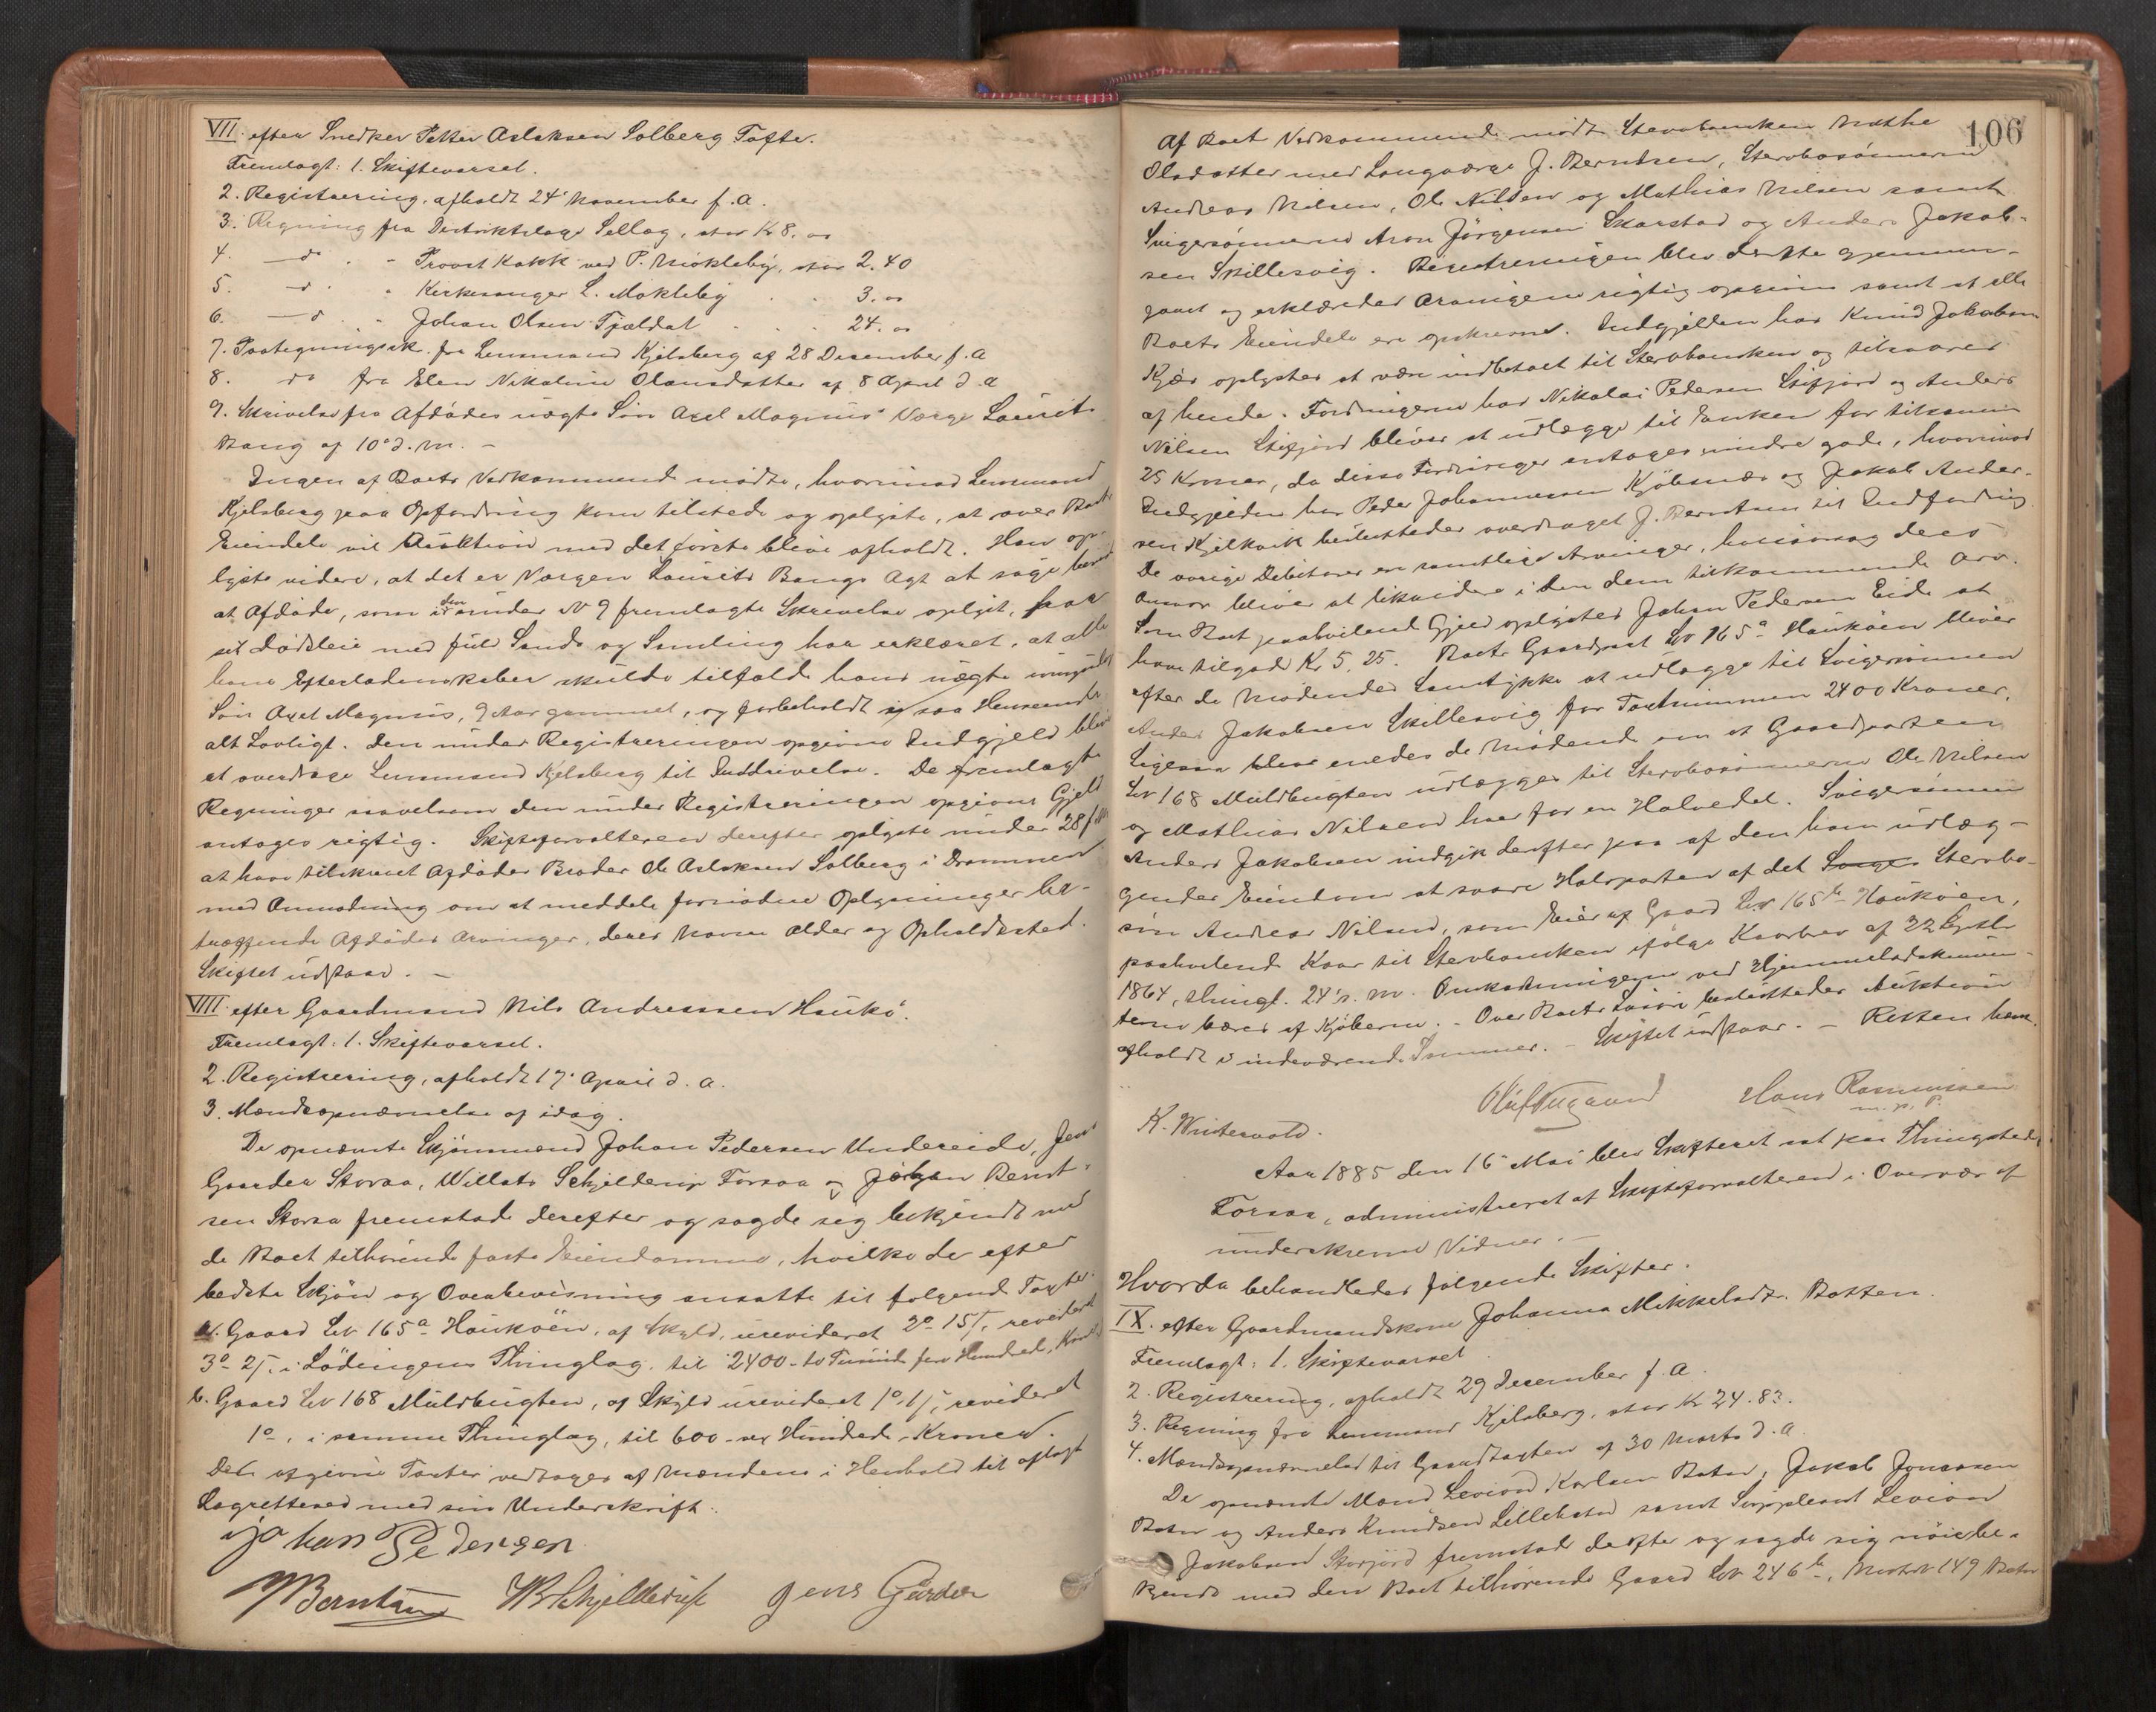 VII. efter Snedker Petter Aslaksen Solberg Tofte.
Fremlagt: 1. Skiftevarsel.
2. Registrering, afholdt 24' November f. a.
3. Regning fra Distriktslæge Sellæg, stor Kr 8. 00
4. — do . - Provst Kokk ved P. Mökleby, stor 2. 40
5. — d . " Kirkesanger L. Mökleby . . 3. 00
6. — d . - Johan Olsen Tjældal . . . 24. 00
7. Paategningssk. fra Lensmand Kjelsberg af 28 Desember f. a
8. do fra Elen Nikoline Olausdatter af 8 April d. a
9. Skrivelse fra Afdødes uægte Søn Axel Magnus' Værge Laurits
Bang af 10' d. m. –
Ingen af Boets Vedkommende mødte, hvorimod Lensmand
Kjelsberg paa Opfordring kom tilstede og oplyste, at over Boets
Eiendele vil Auktion med det første blive afholdt. Han op-
lyste videre, at det er Værgen Laurits Bangs Agt at søge
at Afdøde, som den under No 9 fremlagte Skrivelse oplyst, paa
sit Dødsleie med fuld Sands og Samling har erklæret, at alle
hans Efterladenskaber skulde tilfalde hans uægte
Søn Axel Magnus, 9 Aar gammel, og forbeholdt sig saa Henseende
alt Lovligt. Den under Registreringen opgivne Indgjeld bliver
at overdrage Lensmand Kjelsberg til Inddrivelse. De fremlagte
Regninger saavelsom den under Registreringen opgivne Gjeld
antages rigtig. Skifteforvalteren derefter oplyste under 28 f. M.
at have tilskrevet Afdødes Broder Ole Aslaksen Solberg i Drammen
med Anmodning om at meddele fornødne Oplysninger be-
træffende Afdødes Arvinger, deres Navne Alder og Opholdssted.
Skiftet udstaar. –
VIII. efter Gaardmand Nils Andreassen Haukø.
Fremlagt: 1. Skiftevarsel.
2. Registrering, afholdt 17' April d. a.
3. Mændsopnævnelse af idag.
De opnævnte Skjønsmænd Johan Pedersen Undereide, Jens
Gaarder Storaa, Willats Schjelderup Forsaa og Jørgen Bernt-
sen Storaa fremstod derefter og sagde sig bekjendt med
de Boet tilhørende faste Eiendomme, hvilke de efter
bedste Skjøn og Overbevisning ansatte til følgende Taxter:
a. Gaard Lb 165a Haukøen, af Skyld, urevideret 2o 15/, revideret
3o 2/, i Lødingens Thinglag, til 2400 - to Tusind fire Hundrede, Kroner
b. Gaard Lb 168 Muldbugten, af Skyld urevideret 1o 1/, revideret
1o, i samme Thinglag, til 600 - sex Hundrede - Kroner.
Den afgivne Taxter vedtages af Mændene i Henhold til aflagt
Lagrettesed med sin Underskrift.
Johan Pedersen
J Berntsen W B Schjelderup Jens Gårder
106
Af Boet Vedkommende mødte Stervboenken Mathe
Olsdatter med Laugværge J. Berntsen, Stervbosønnerne
Andreas Nilsen, Ole Nilsen og Mathias Nilsen samt
Svigersønnerne Aron Jörgensen Skarstad og Anders Jakob-
sen Skillesvig. Registreringen blev derefte gjennem-
gaaet og erklæredes Arvingerne rigtig opgivne samt at alle
Boets Eiendele ere opskrevne. Indgjelden hos Knud Jakobsen
Kjær oplystes at være indbetalt til Stervboenken og tilsvares
af hende. Fordringerne hos Nikolai Pedersen Stifjord og Anders
Nilsen Stifjord bliver at udlægge til Enken for tilsammen
25 Kroner, da disse Fordringer antages mindre gode, hvorimod
Indgjelden hos Peder Johannessen Kjöbsnæs og Jakob Ander-
sen Kjelkvik besluttedes overdraget J. Berntsen til Indfordring
De øvrige Debitorer ere samtlige Arvinger, hvis deres
Ansvar bliver at likvidere i den dem tilkommende Arv.
Som Boet paahvilende Gjeld oplystes Johan Pedersen Eide at
have tilgode Kr 5. 25. Boets Gaardpart Lb 165a Haukøen bliver
efter de Mødendes Samtykke at udlægge til Svigersønnen
Anders Jakobsen Skillesvig for Taxtsummen 2400 Kroner.
Ligesaa blev enedes de Mødende om at Gaardparten
Lb 168 Muldbugten udlægges til Stervbosønnerne Ole Nilsen
og Mathias Nilsen hver for en Halvedel. Svigersønnen
Anders Jakobsen indgik derefter paa af den ham udlæg-
gendes Eiendom at svare Halvparten af det Stervbo-
søn Andreas Nilsen, som Eier af Gaard Lb 165b Haukøen,
paahvilende Kaar til Stervboenken ifølge Kaarbrev af 22
1864, thingl. 24' s. m. Omkostningerne ved Hjemmelsdokumen-
terne bæres af Kjøberne. – Over Boets Løsøre besluttedes Auktion
afholdt i indeværende Sommer. – Skiftet udstaar. – Retten hævet.
K. Wintervold. Hans Rasmussen
m. p. P.
Aar 1885 den 16 Mai blev Skifteret sat paa Thingstedet
Forsaa, administreret af Skifteforvalteren i Overvær af
underskrevne Vidner. –
Hvorda behandledes følgende Skifter.
IX. efter Gaardmandskone Johanna Mikkelsdt. Botten.
Fremlagt: 1. Skiftevarsel
2. Registrering, afholdt 29 December f. a.
3. Regning fra Lensmand Kjelsberg, stor Kr 24. 83.
4. Mændsopnævnelse til Gaardtaxten af 30 Marts d. a.
De opnævnte Mænd Levion Karlsen Botn, Jakob Jonassen
Botn og Anders Knudsen Lillebotn samt Levion
Jakobsen Storjord fremstod derefter og sagde sig nøie be-
kjendt med den Boet tilhørende Gaard Lb 246b, Matr 149 Botn